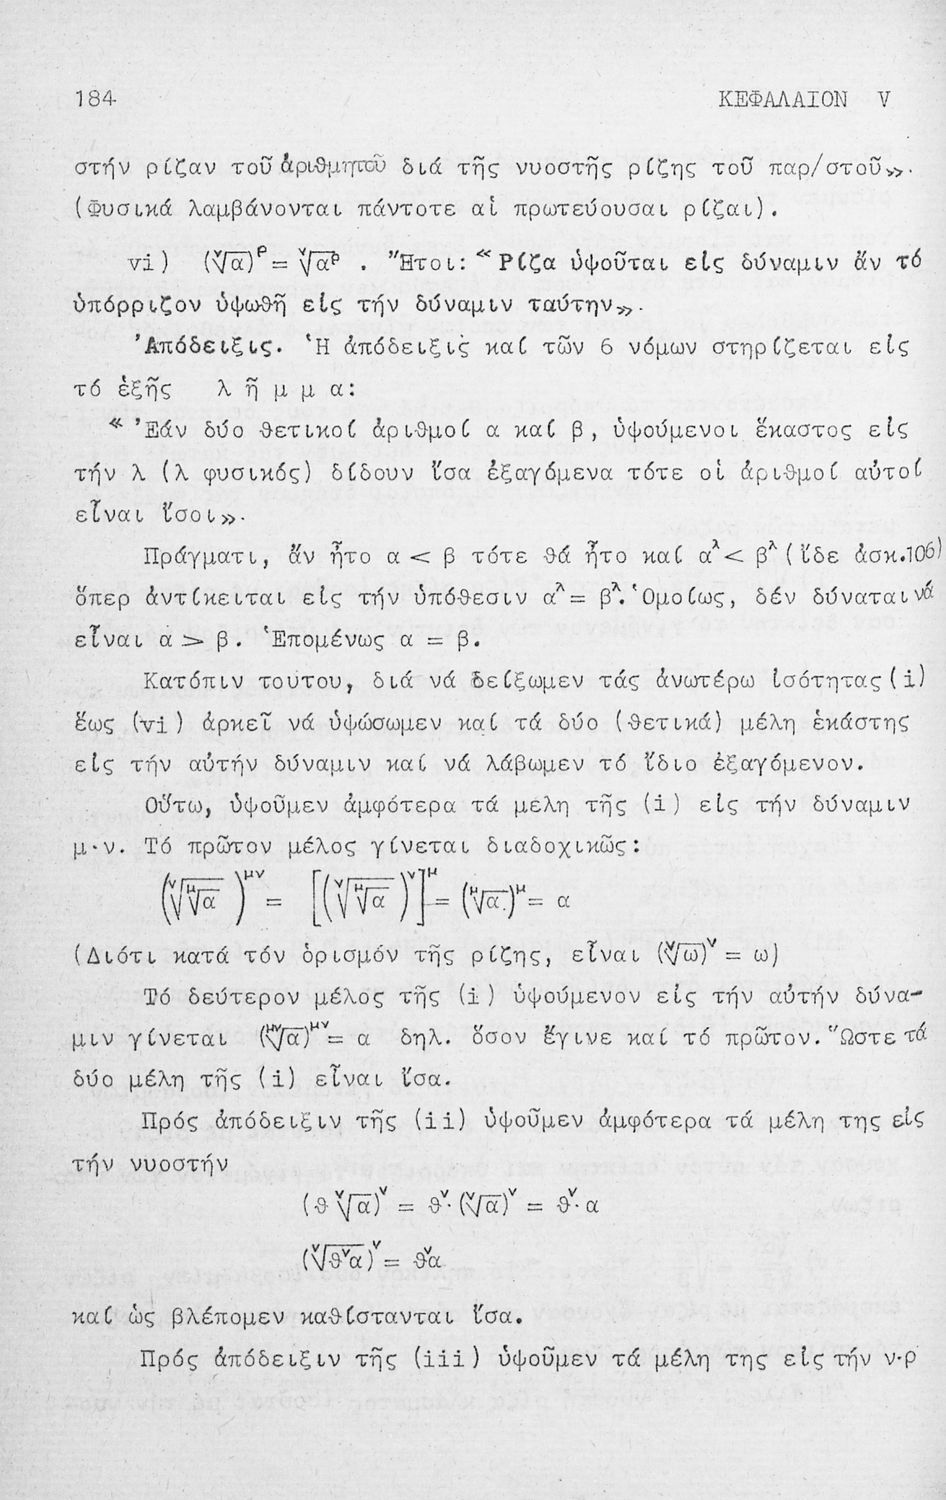 184 ΚΕΦΑΛΑΙΟΝ V
στήν ρίζαν τοῦ ἀριθμητοῦ διά τῆς νυοστῆς ρίζης τοῦ παρ/στοῦ».
(Φυσικά λαμβάνονται πάντοτε αἱ πρωτεύουσαι ρίζαι).
vi) (ᵛ√α)ᵖ = ᵛ√αᵖ . "Ητοι: «Ρίζα ὑψοῦται εἰς δύναμιν ἄν τό
ὑπόρριζον ὑψωθῆ εἰς τήν δύναμιν ταύτην».
Ἀπόδειξις. Ἡ ἀπόδειξις καί τῶν 6 νόμων στηρίζεται εἰς
τό ἑξῆς λ ῆ μ μ α:
« Ἐάν δύο θετικοί ἀριθμοί α καί β, ὑψούμενοι ἕκαστος εἰς
τήν λ (λ φυσικός) δίδουν ἴσα ἐξαγόμενα τότε οἱ ἀριθμοί αὐτοί
εἶναι ἴσοι».
Πράγματι, ἄν ἦτο α < β τότε θά ἦτο καί α^λ < β^λ (ἴδε ἀσκ.106)
ὅπερ ἀντίκειται εἰς τήν ὑπόθεσιν α^λ = β^λ. Ὁμοίως, δέν δύναται νά
εἶναι α > β. Ἑπομένως α = β.
Κατόπιν τούτου, διά νά δείξωμεν τάς ἀνωτέρω ἰσότητας (i)
ἕως (vi) ἀρκεῖ νά ὑψώσωμεν καί τά δύο (θετικά) μέλη ἑκάστης
εἰς τήν αὐτήν δύναμιν καί νά λάβωμεν τό ἴδιο ἐξαγόμενον.
Οὕτω, ὑψοῦμεν ἀμφότερα τά μέλη τῆς (i) εἰς τήν δύναμιν
μ·ν. Τό πρῶτον μέλος γίνεται διαδοχικῶς:
(ᵛ√ᵘ√α)^μν = [(ᵛ√ᵘ√α)^ν]^μ = (ᵘ√α)^μ = α
(Διότι κατά τόν ὁρισμόν τῆς ρίζης, εἶναι (ᵛ√ω)^ν = ω)
Τό δεύτερον μέλος τῆς (i) ὑψούμενον εἰς τήν αὐτήν δύνα-
μιν γίνεται (ᵘᵛ√α)^μν = α δηλ. ὅσον ἔγινε καί τό πρῶτον. Ὥστε τά
δύο μέλη τῆς (i) εἶναι ἴσα.
Πρός ἀπόδειξιν τῆς (ii) ὑψοῦμεν ἀμφότερα τά μέλη της εἰς
τήν νυοστήν
(θ ᵛ√α)^ν = θ^ν · (ᵛ√α)^ν = θ^ν · α
(ᵛ√θ^ν α)^ν = θ^ν α
καί ὡς βλέπομεν καθίστανται ἴσα.
Πρός ἀπόδειξιν τῆς (iii) ὑψοῦμεν τά μέλη της εἰς τήν ν·ρ